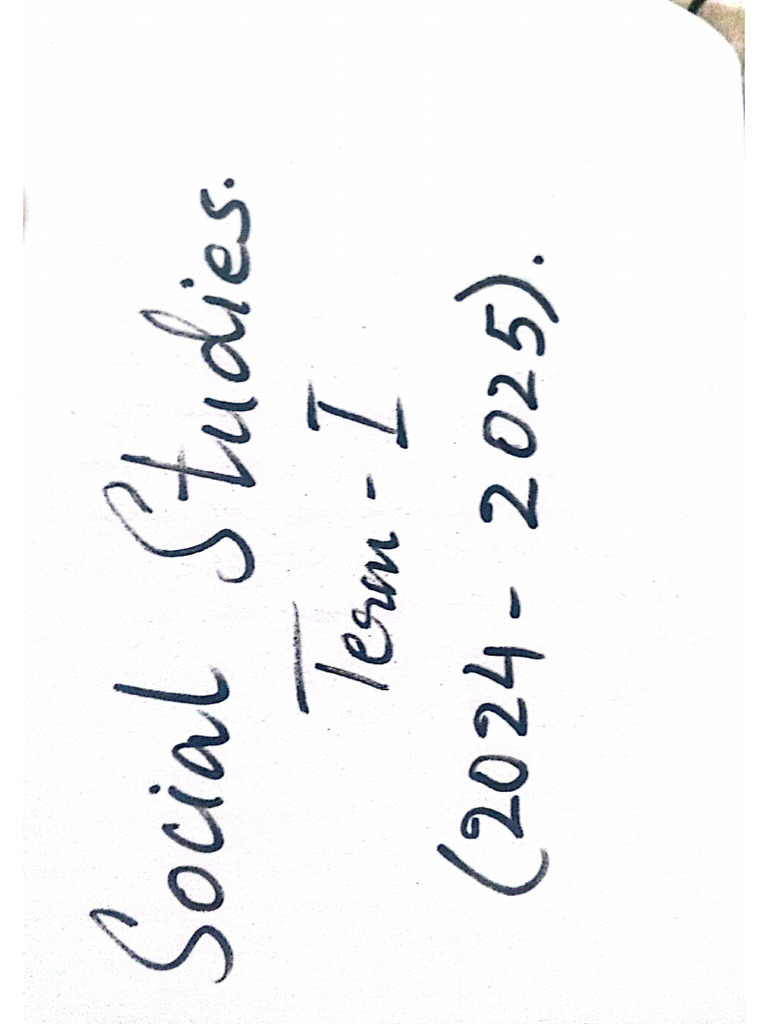 Social Studies.
Term - I
(2024 - 2025).